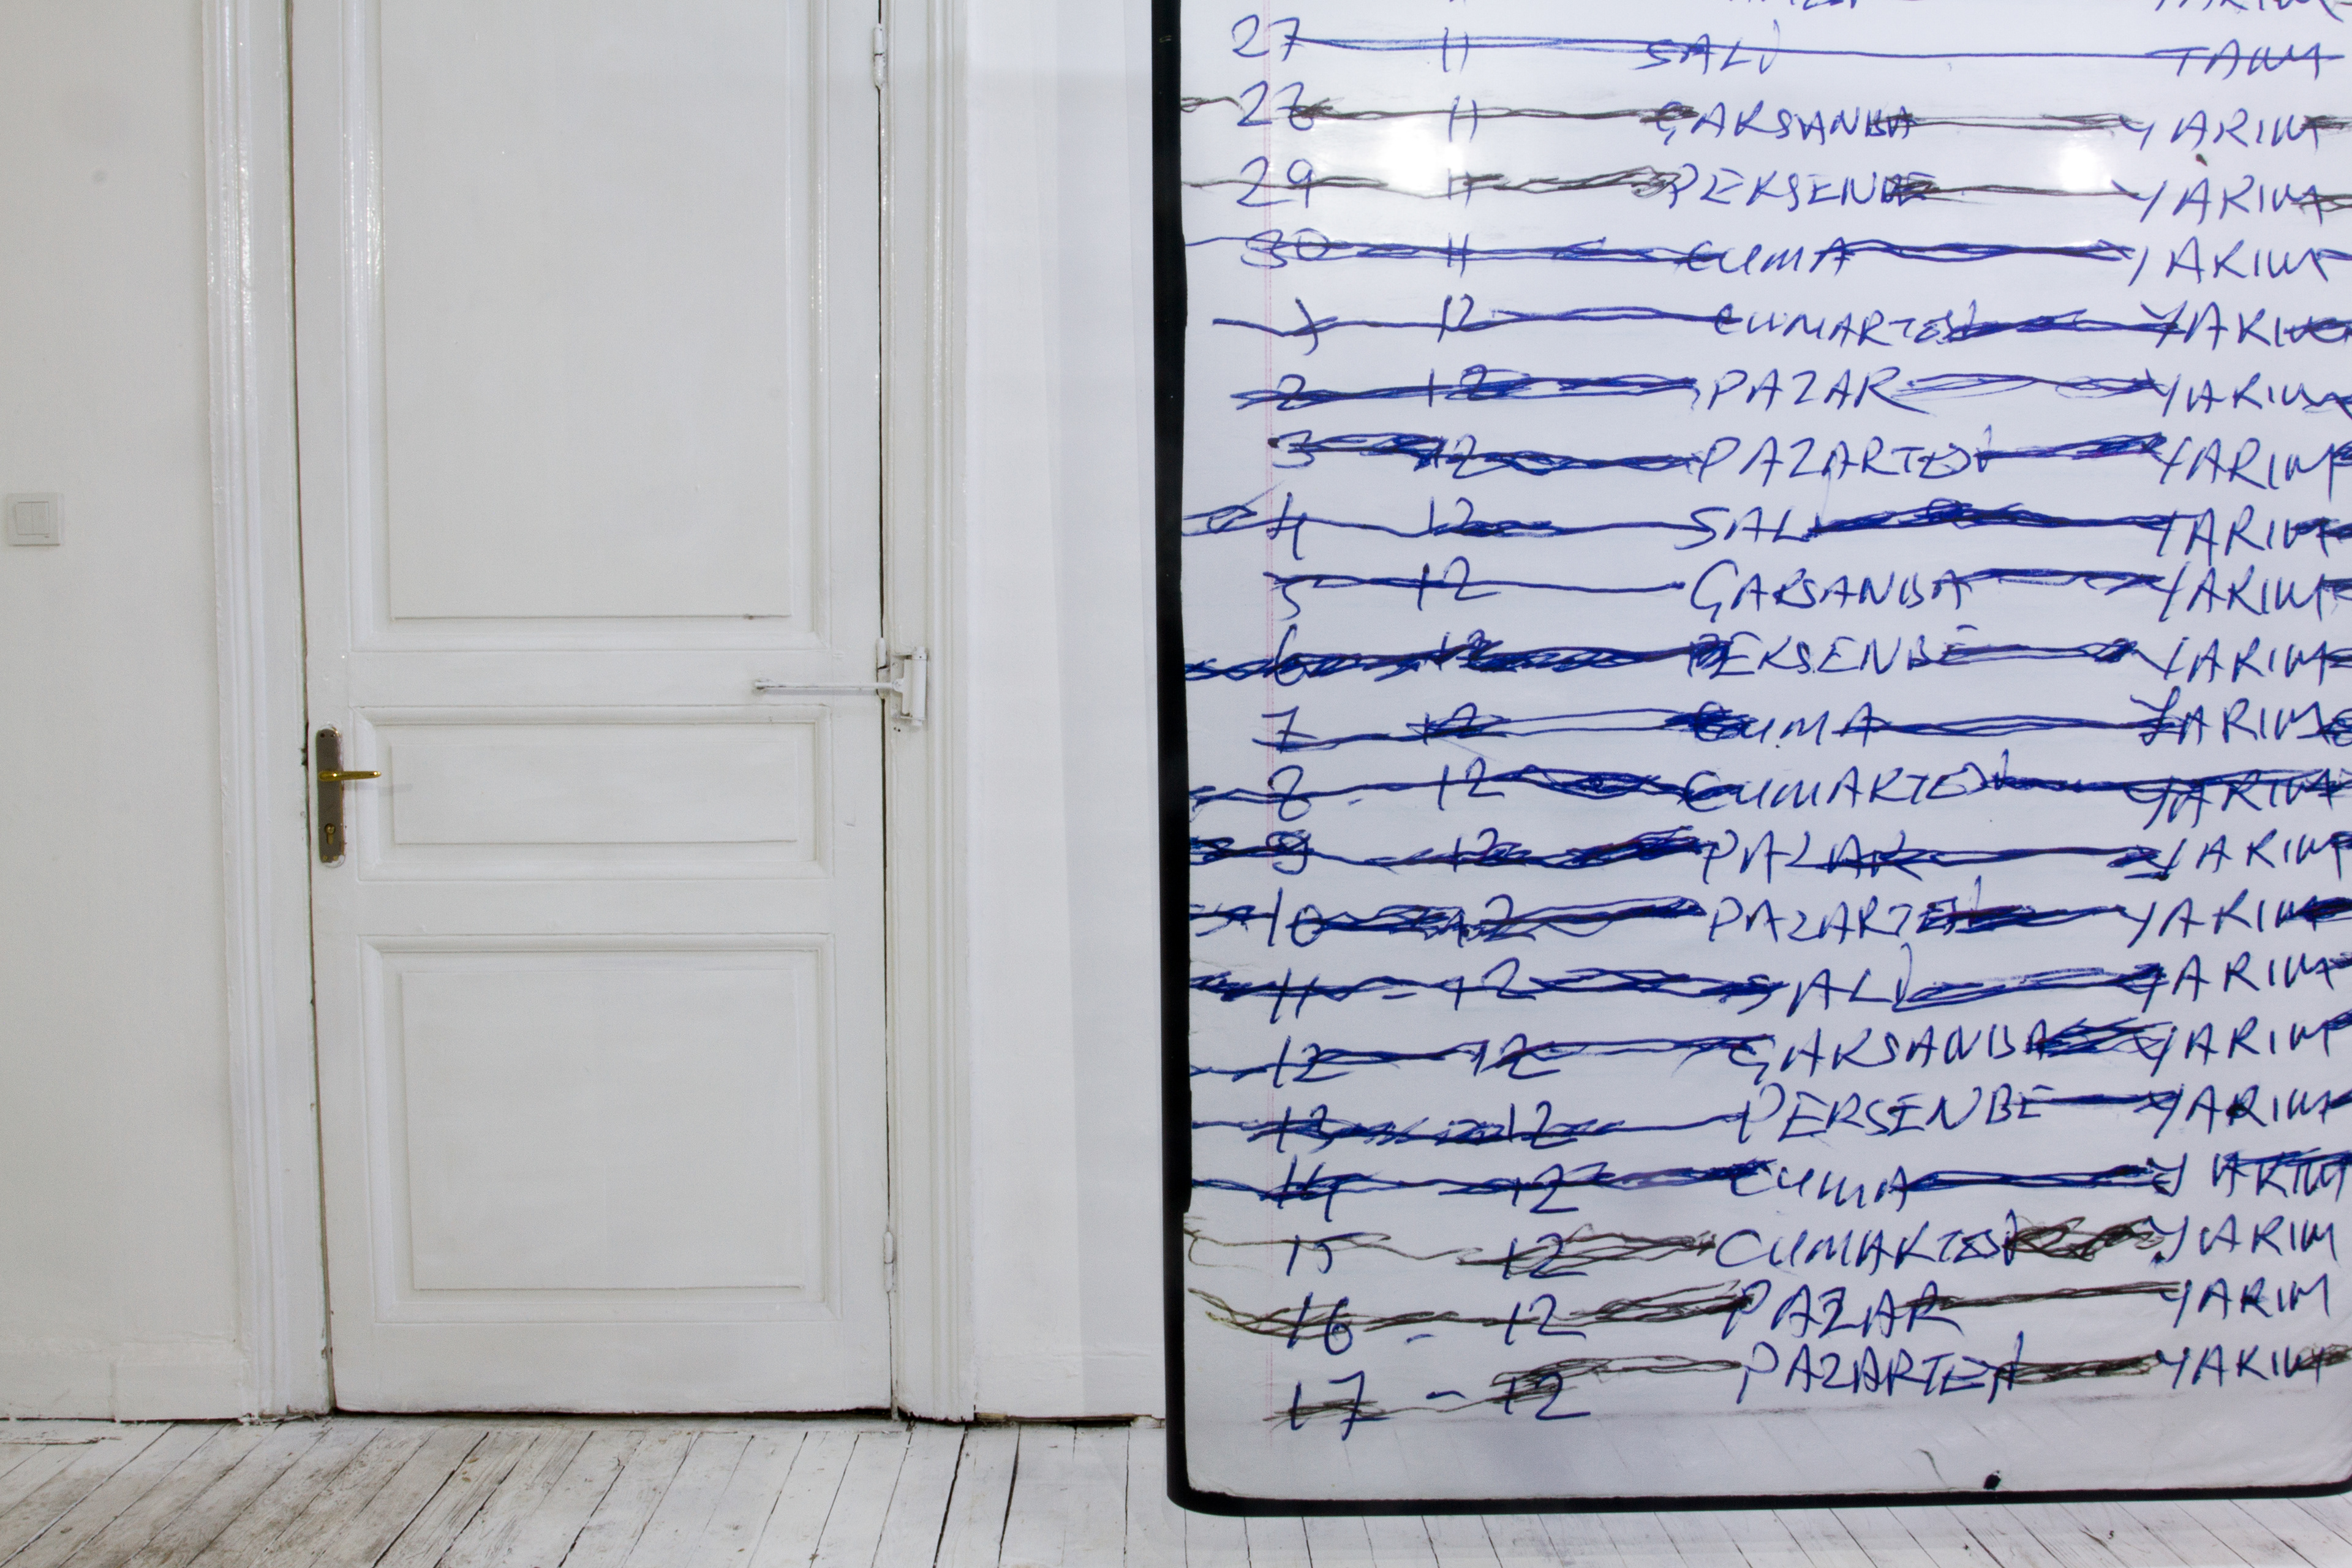 27 11 SALI TAM
28 11 ÇARSANBA YARIM
29 11 PERSENBE YARIM
30 11 CUMA YARIM
1 12 CUMARTESİ YARIM
2 12 PAZAR YARIM
3 12 PAZARTESİ YARIM
4 12 SALI YARIM
5 12 ÇARSANBA YARIM
6 12 PERSENBE YARIM
7 12 CUMA YARIM
8 - 12 CUMARTESİ YARIM
9 12 PAZAR YARIM
10 12 PAZARTESİ YARIM
11 - 12 SALI YARIM
12 12 ÇARSANBA YARIM
13 12 PERSENBE YARIM
14 12 CUMA YARIM
15 12 CUMARTESİ YARIM
16 - 12 PAZAR YARIM
17 - 12 PAZARTESİ YARIM